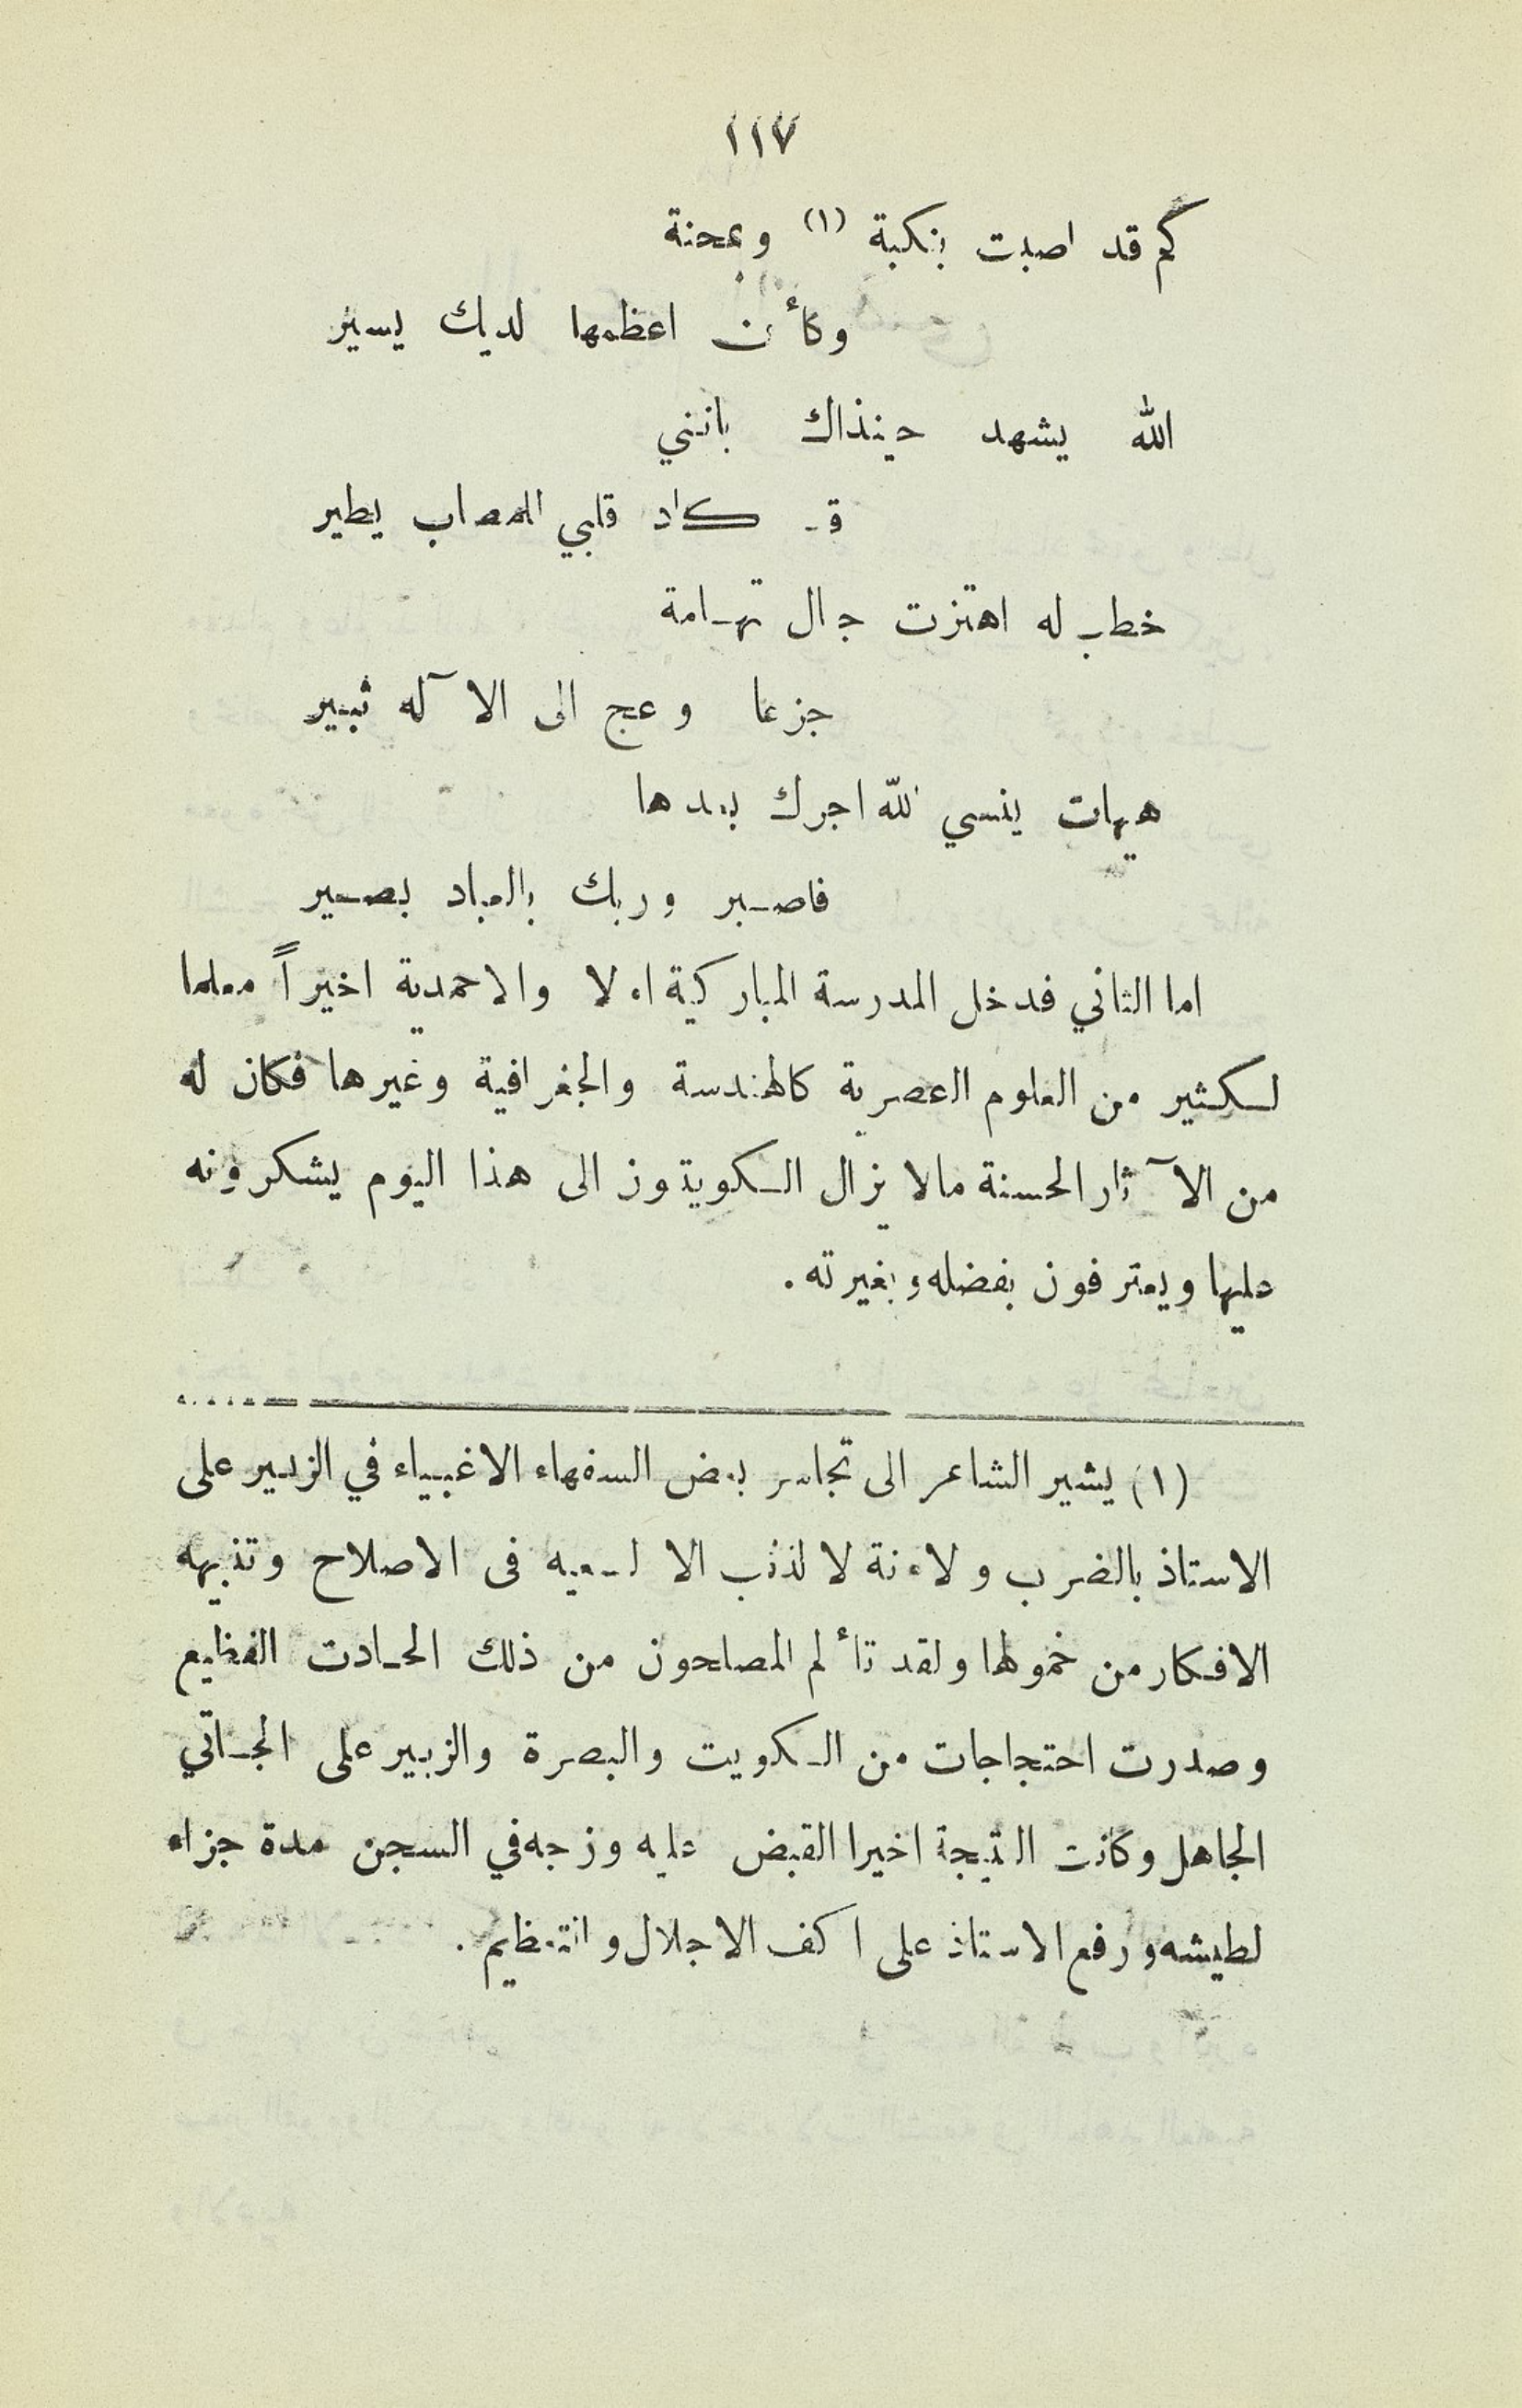 ١١٧
كم قد اصبت بنكبة (١) وبمحنة
وكأن اعظمها لديك يسير
الله يشهد حينذاك بانني
قد كاد قلبي المصاب يطير
خطب له اهتزت جبال تهامة
جزعا وعج الى الاآله ثبير
هيهات ينسي الله اجرك بعدها
فاصبر وربك بالعباد بصير
اما الثاني فدخل المدرسة المباركية اولا والاحمدية اخيراً معلما
لكثير من العلوم العصرية كالهندسة والجغرافية وغيرها فكان له
من الاآثار الحسنة مالا يزال الكويتيون الى هذا اليوم يشكرونه
عليها ويعترفون بفضله وبغيرته .
(١) يشير الشاعر الى تجاسر بعض السفهاء الاغبياء في الزبير على
الاستاذ بالضرب ولاهانة لا لذنب الا لسعيه فى الاصلاح وتنبيهه
الافكار من خمولها ولقد تألم المصلحون من ذلك الحادث الفظيع
وصدرت احتجاجات من الكويت والبصرة والزبير على الجاني
الجاهل وكانت النتيجة اخيرا القبض عليه وزجه في السجن مدة جزاء
لطيشه ورفع الاستاذ على اكف الاجلال والتعظيم .